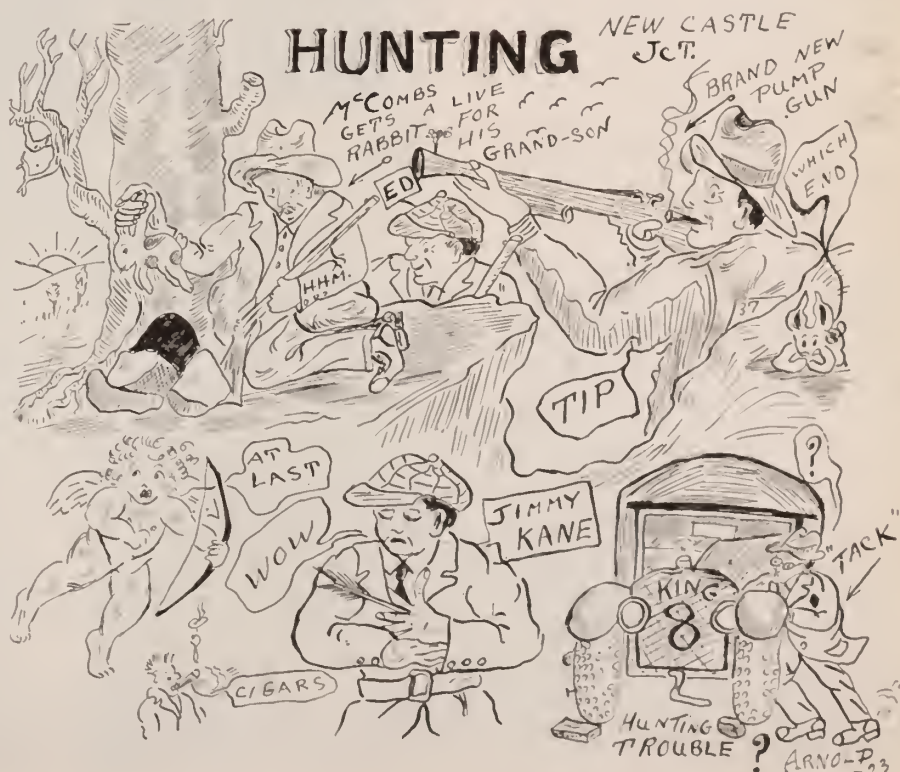 HUNTING
NEW CASTLE
JCT.
McCOMBS
GETS A LIVE
RABBIT FOR
HIS
GRAND-SON
BRAND NEW
PUMP
GUN
WHICH
END
ED
H.H.M.
37
TIP
AT
LAST
WOW
JIMMY
KANE
CIGARS
?
"TACK"
KING
8
HUNTING
TROUBLE
?
ARNO-P.
23